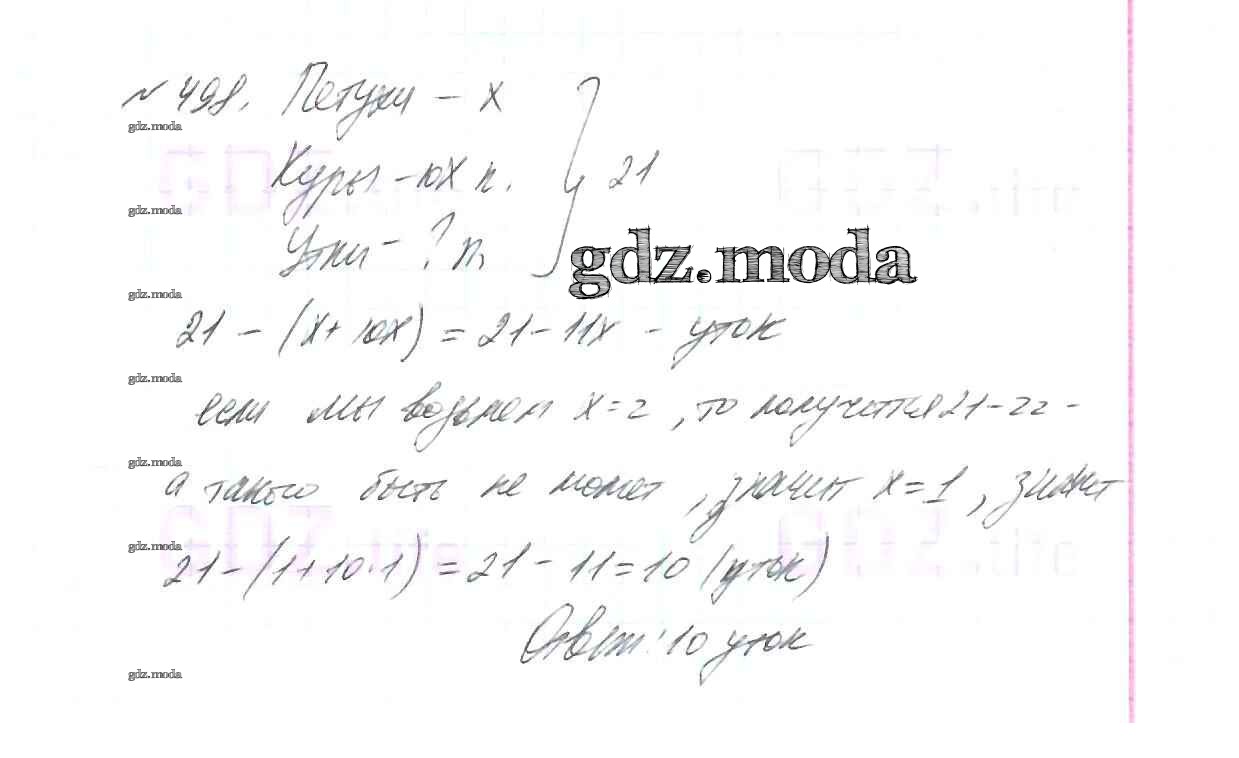 № 498. Петухи – х
gdz.moda
Куры – 10х п. } 21
gdz.moda
Утки – ? п.
gdz.moda
gdz.moda
21 – (х + 10х) = 21 – 11х – уток
gdz.moda
если мы возьмем х = 2, то получится 21 – 22 –
gdz.moda
а такого быть не может, значит х = 1, значит
gdz.moda
21 – (1 + 10 · 1) = 21 – 11 = 10 (уток)
Ответ: 10 уток
gdz.moda